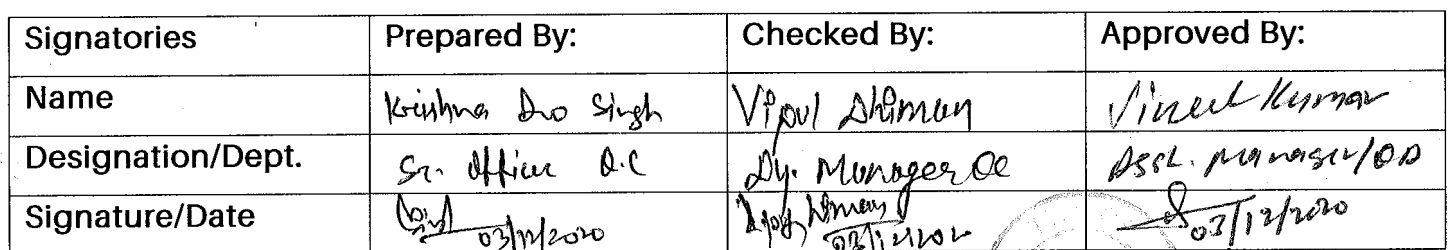 Signatories Prepared By: Checked By: Approved By:
Name Krishna Deo Singh Vipul Dhiman Vineet Kumar
Designation/Dept. Sr. Officer Q.C Dy. Manager QC Asst. Manager/QA
Signature/Date 03/12/2020 03/12/202 03/12/2020